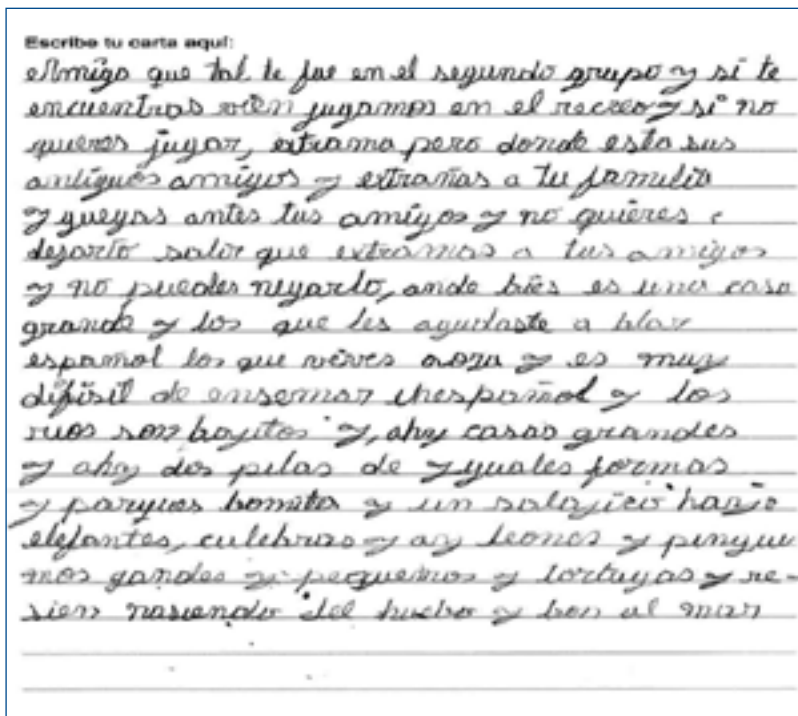 Escribe tu carta aquí:
Amigo que tal te fue en el segundo grupo y si te
encuentras vien jugamos en el recreo y si no
quieres jugar, extrama pero donde esta sus
antiguos amigos y extrañas a tu familia
y gueyas antes tus amigos y no quieres
dejarlo salir que extramas a tus amigos
y no puedes negarlo, ande bies es una casa
grande y los que les ayudaste a blar
español los que vives aora y es muy
difisil de ensemar español y los
rios son bojitos y, ahy casas grandes
y ahy dos pilas de yguales formas
y parques bomitos y un
elefantes, culebras y ay leones y pengue
mos gandes y pequemos y tortugas y re-
sien nasiendo del huebo y ban al mar